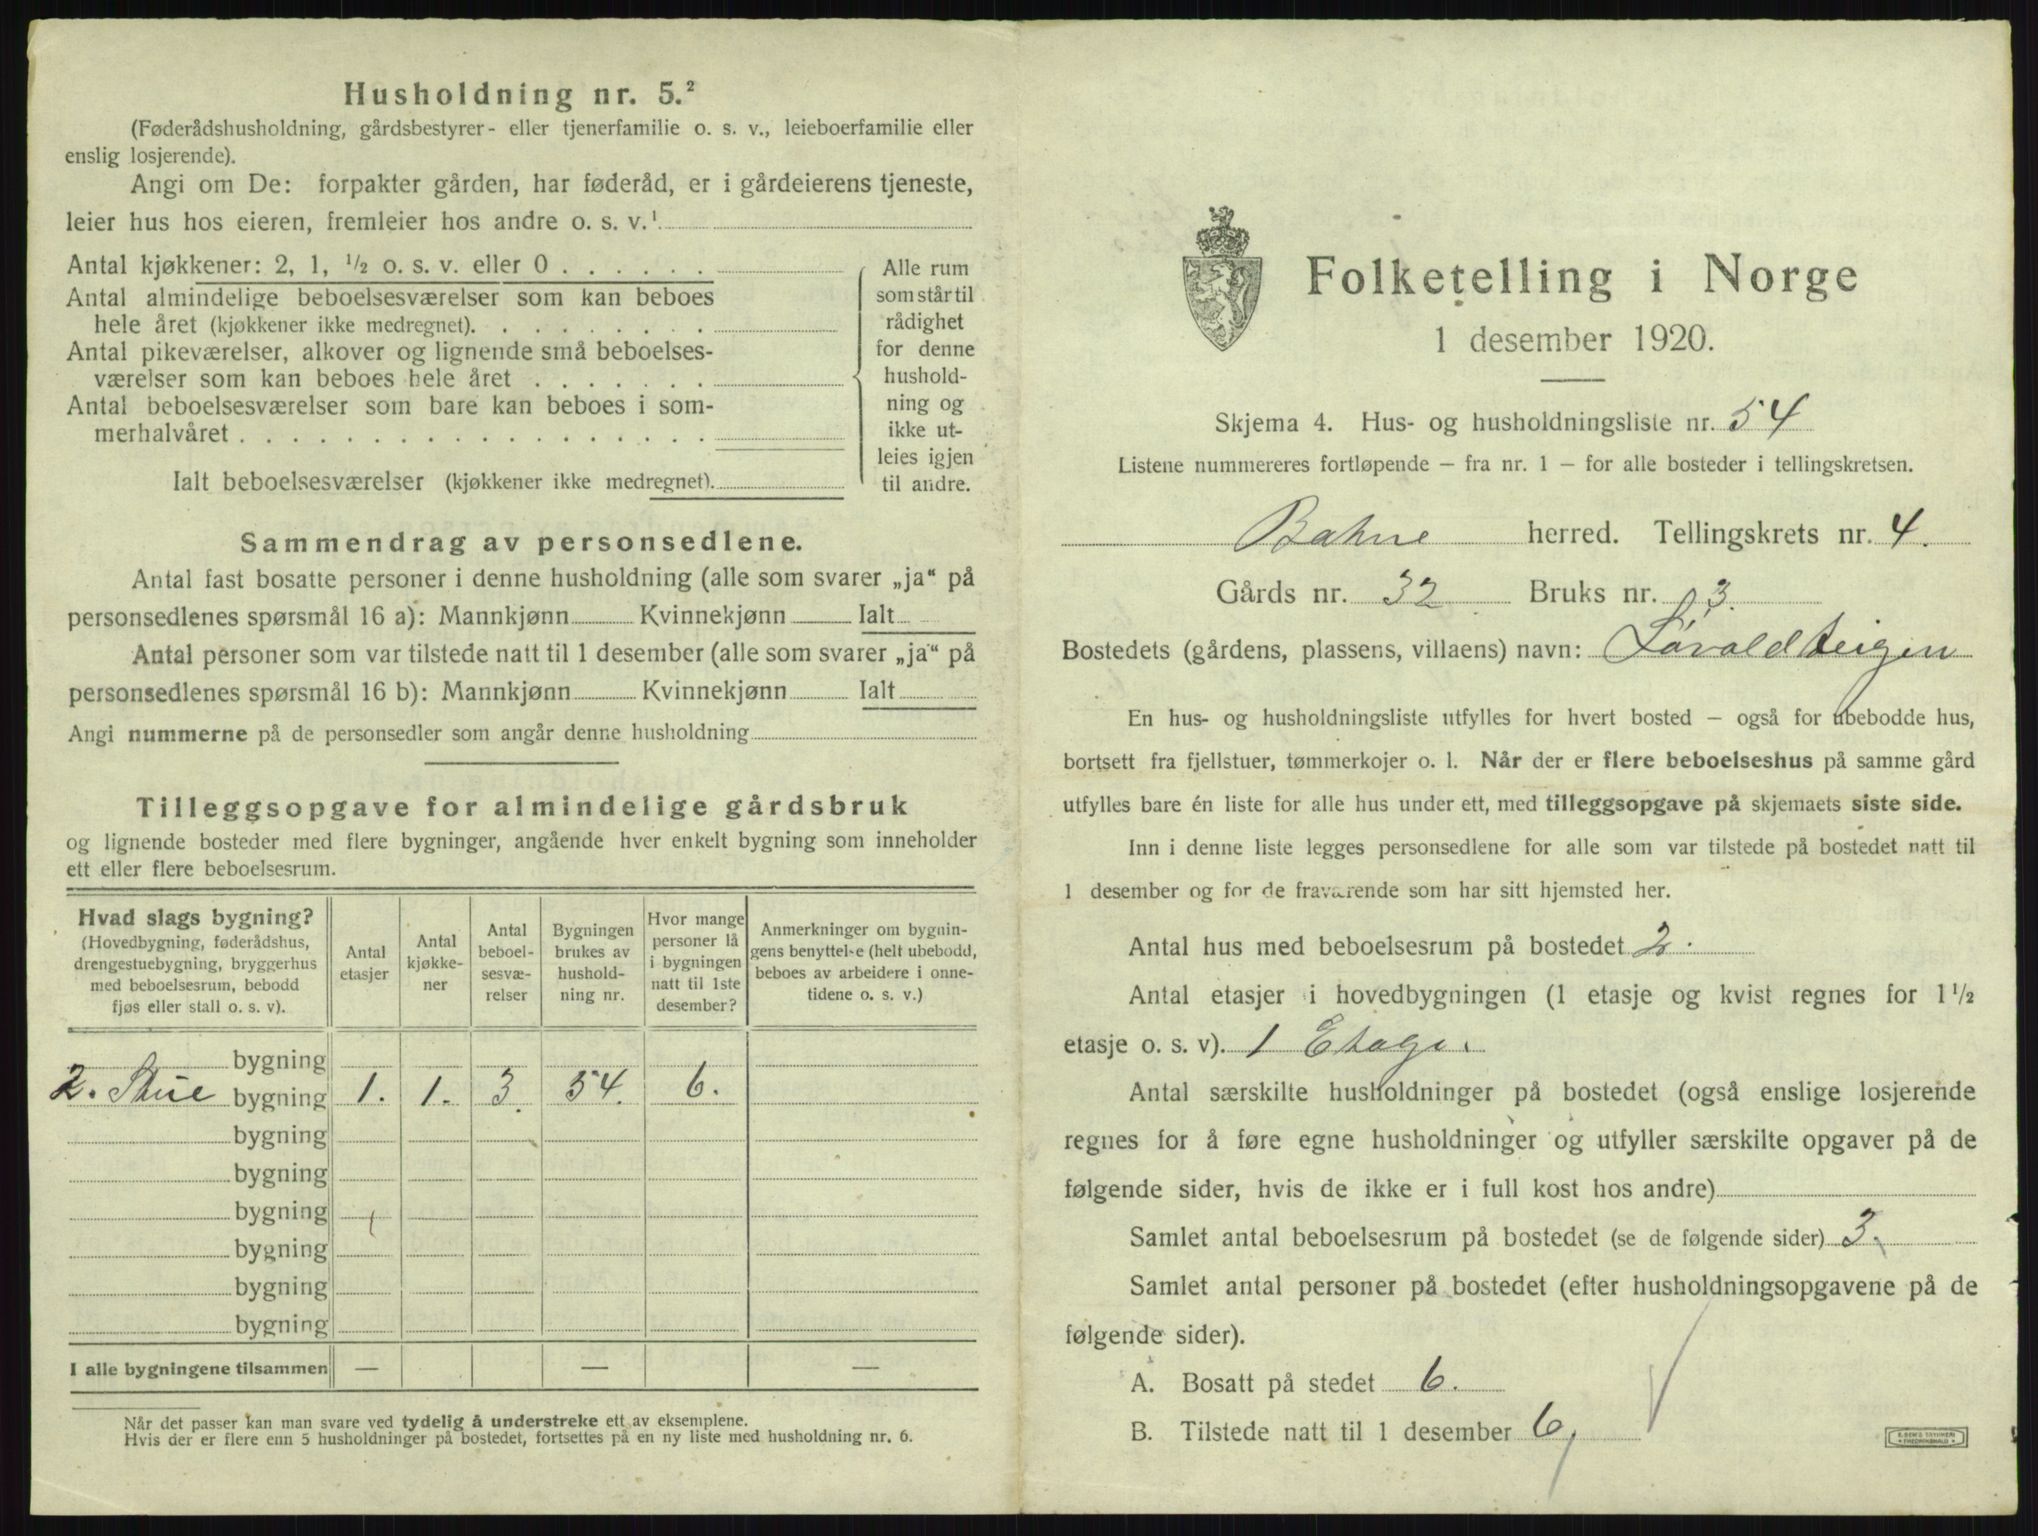 Husholdning nr. 5.²
(Føderådshusholdning, gårdsbestyrer- eller tjenerfamilie o. s. v., leieboerfamilie eller
enslig losjerende).
Angi om De: forpakter gården, har føderåd, er i gårdeierens tjeneste,
leier hus hos eieren, fremleier hos andre o. s. v.¹
Antal kjøkkener: 2, 1, ½ o. s. v. eller 0 . . . . . .
Antal almindelige beboelsesværelser som kan beboes
hele året (kjøkkener ikke medregnet). . . . . . . . .
Antal pikeværelser, alkover og lignende små beboelses-
værelser som kan beboes hele året . . . . . . .
Antal beboelsesværelser som bare kan beboes i som-
merhalvåret . . . . . . . . . . . . . . . . . .
Ialt beboelsesværelser (kjøkkener ikke medregnet).
Alle rum
som står til
rådighet
for denne
hushold-
ning og
ikke ut-
leies igjen
til andre.
Sammendrag av personsedlene.
Antal fast bosatte personer i denne husholdning (alle som svarer „ja“ på
personsedlenes spørsmål 16 a): Mannkjønn Kvinnekjønn Ialt
Antal personer som var tilstede natt til 1 desember (alle som svarer „ja“ på
personsedlenes spørsmål 16 b): Mannkjønn Kvinnekjønn Ialt
Angi nummerne på de personsedler som angår denne husholdning
Tilleggsopgave for almindelige gårdsbruk
og lignende bosteder med flere bygninger, angående hver enkelt bygning som inneholder
ett eller flere beboelsesrum.
Hvad slags bygning?
(Hovedbygning, føderådshus,
drengestuebygning, bryggerhus
med beboelsesrum, bebodd
fjøs eller stall o. s. v).
Antal
etasjer
Antal
kjøkke-
ner
Antal
beboel-
sesvæ-
relser
Bygningen
brukes av
hushold-
ning nr.
Hvor mange
personer lå
i bygningen
natt til 1ste
desember?
Anmerkninger om bygnin-
gens benyttelse (helt ubebodd,
beboes av arbeidere i onne-
tidene o. s. v.)
bygning
2. Stue bygning 1. 1. 3. 54. 6.
bygning
bygning
bygning
bygning
bygning
bygning
I alle bygningene tilsammen — — —
Når det passer kan man svare ved tydelig å understreke ett av eksemplene.
Hvis der er flere enn 5 husholdninger på bostedet, fortsettes på en ny liste med husholdning nr. 6.
Folketelling i Norge
1 desember 1920.
Skjema 4. Hus- og husholdningsliste nr. 54
Listene nummereres fortløpende — fra nr. 1 — for alle bosteder i tellingskretsen.
herred. Tellingskrets nr. 4.
Gårds nr. 32 Bruks nr. 3.
Bostedets (gårdens, plassens, villaens) navn: Løvoldteigen
En hus- og husholdningsliste utfylles for hvert bosted — også for ubebodde hus,
bortsett fra fjellstuer, tømmerkojer o. l. Når der er flere beboelseshus på samme gård
utfylles bare én liste for alle hus under ett, med tilleggsopgave på skjemaets siste side.
Inn i denne liste legges personsedlene for alle som var tilstede på bostedet natt til
1 desember og for de fraværende som har sitt hjemsted her.
Antal hus med beboelsesrum på bostedet 2.
Antal etasjer i hovedbygningen (1 etasje og kvist regnes for 1½
etasje o. s. v). 1 Etage.
Antal særskilte husholdninger på bostedet (også enslige losjerende
regnes for å føre egne husholdninger og utfyller særskilte opgaver på de
følgende sider, hvis de ikke er i full kost hos andre)
Samlet antal beboelsesrum på bostedet (se de følgende sider) 3.
Samlet antal personer på bostedet (efter husholdningsopgavene på de
følgende sider).
A. Bosatt på stedet 6.
B. Tilstede natt til 1 desember 6